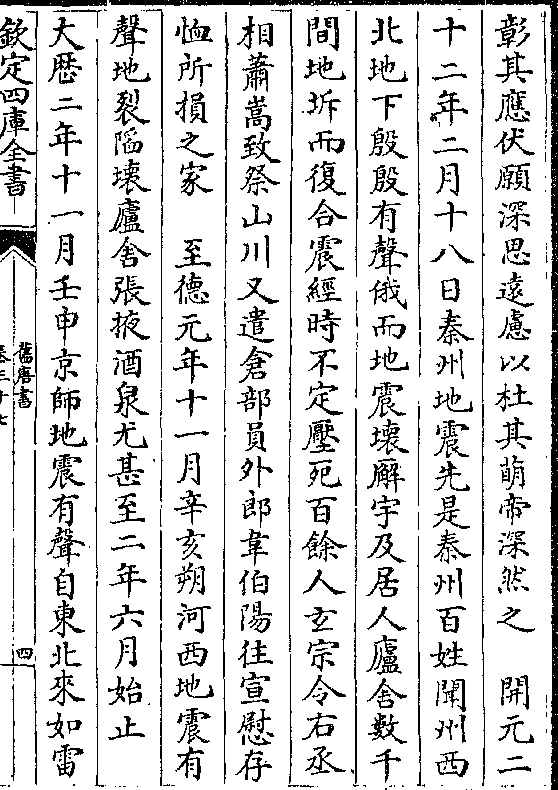 彰其應伏願深思遠慮以杜其萌帝深然之　開元二
十二年二月十八日秦州地震先是秦州百姓聞州西
北地下殷殷有聲俄而地震壞廨宇及居人廬舍數千
間地坼而復合震經時不定壓死百餘人玄宗令右丞
相蕭嵩致祭山川又遣倉部員外郎韋伯陽往宣慰存
恤所損之家　至德元年十一月辛亥朔河西地震有
聲地裂陷壞廬舍張掖酒泉尤甚至二年六月始止
大歴二年十一月壬申京師地震有聲自東北來如雷
欽定四庫全書
舊唐書
卷三十七
四